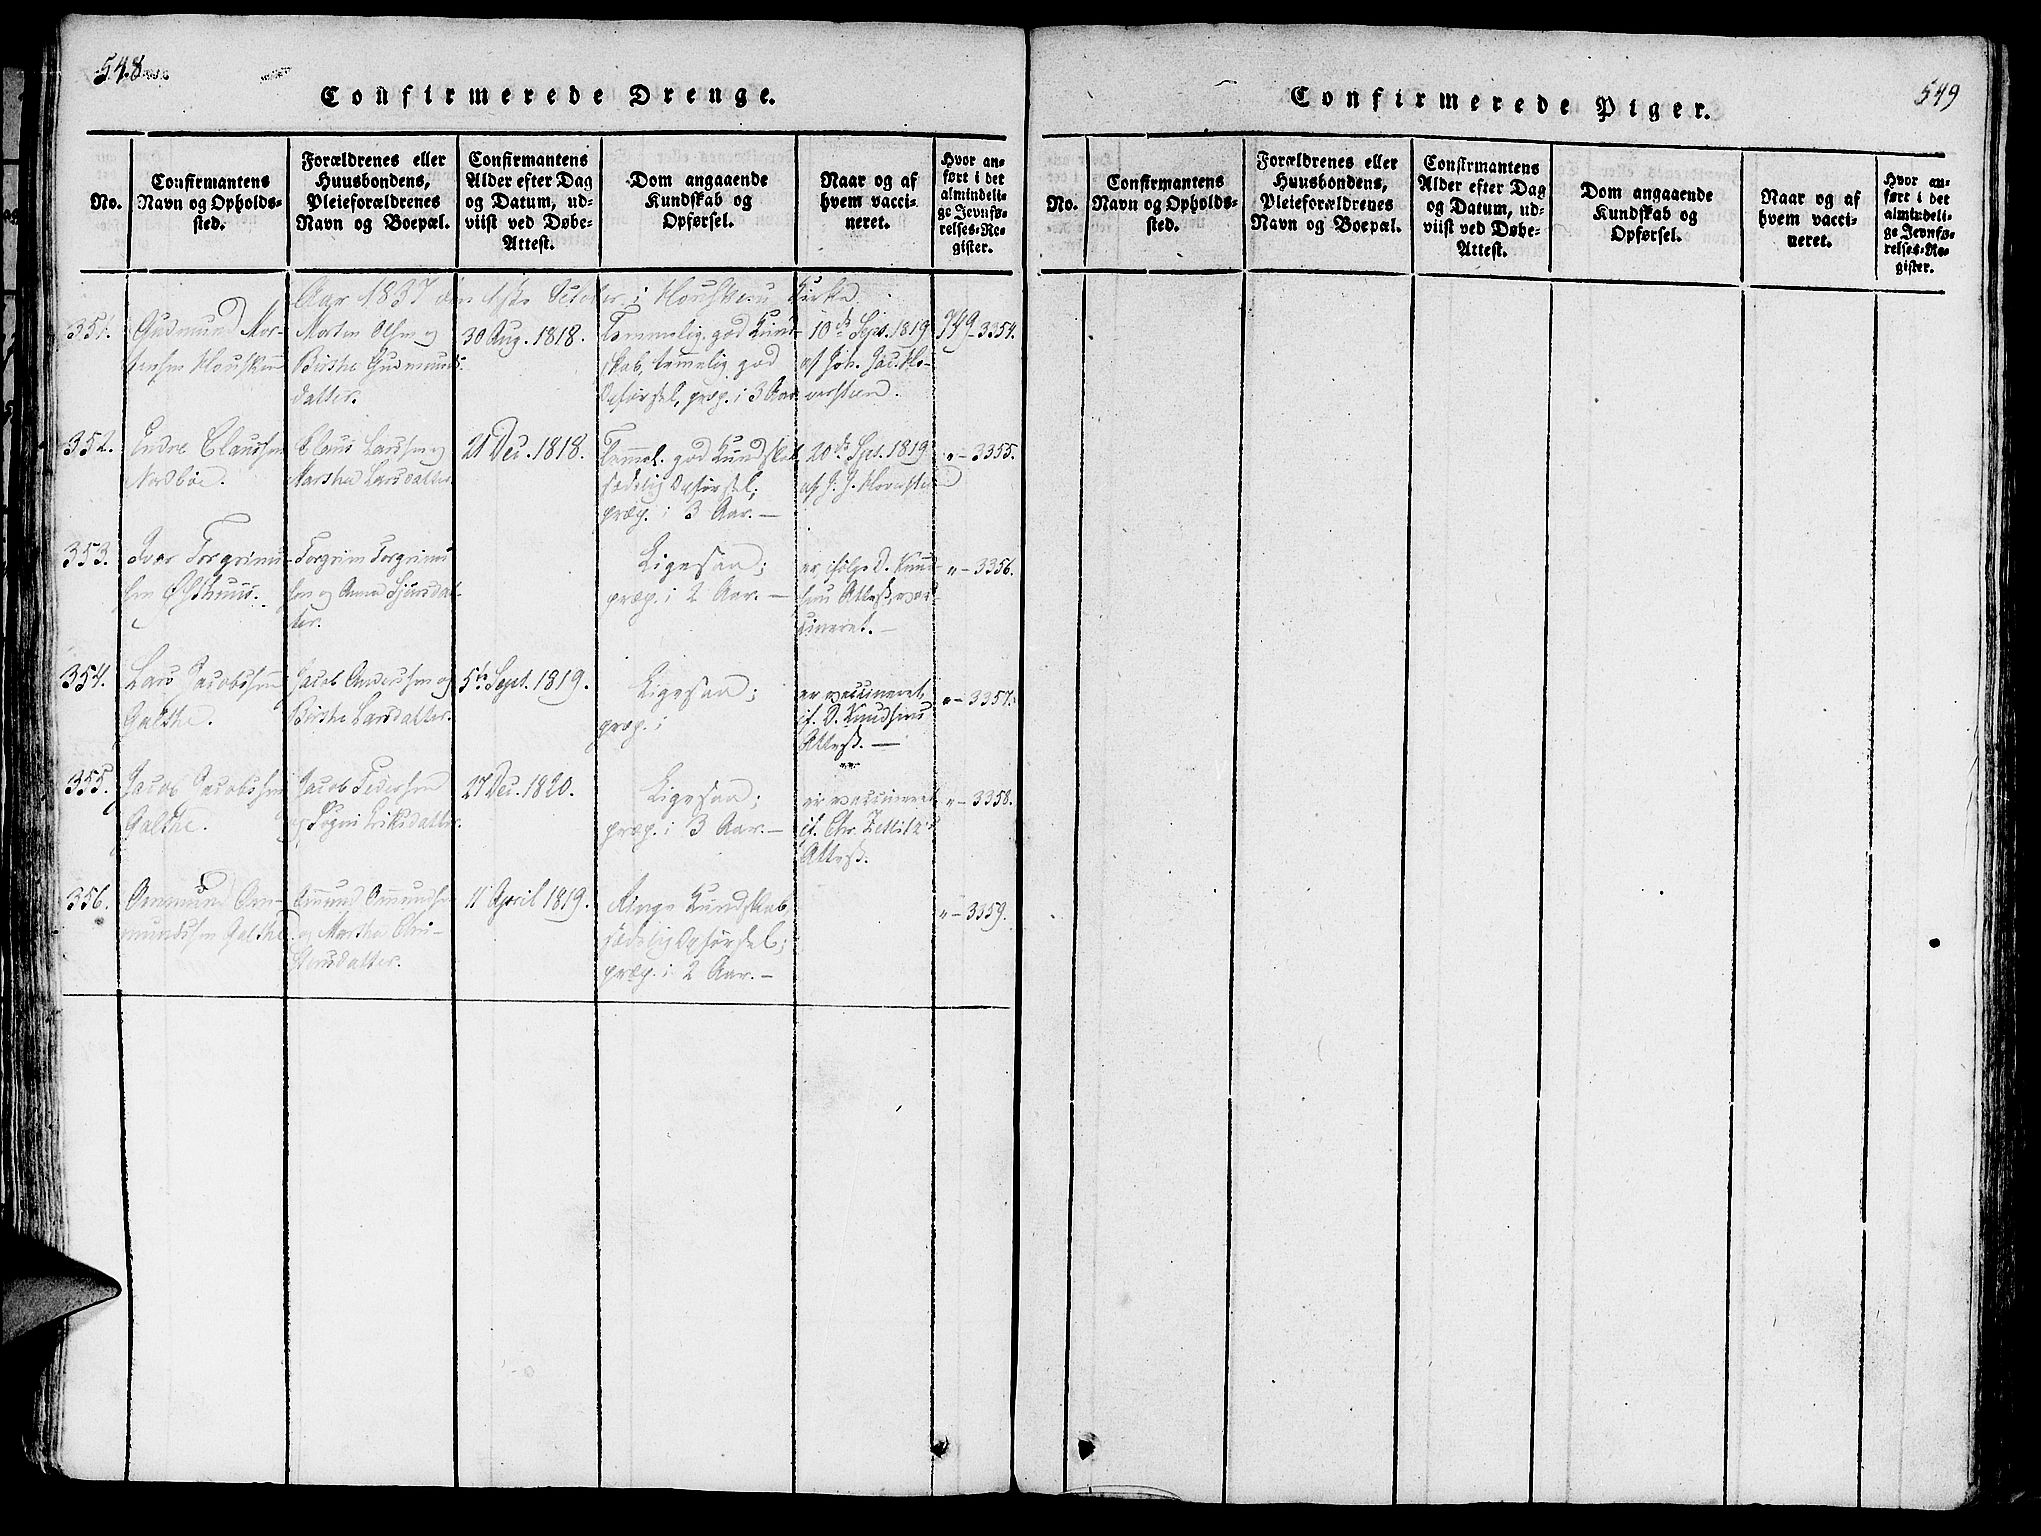 548
Confirmerede Drenge.
No.
Confirmantens
Navn og Opholds-
sted.
Forældrenes eller
Huusbondens,
Pleieforældrenes
Navn og Boepæl.
Confirmantens
Alder efter Dag
og Datum, ud-
viist ved Døbe-
Attest.
Dom angaaende
Kundskab og
Opførsel.
Naar og af
hvem vacci-
neret.
Hvor an-
ført i det
almindeli-
ge Jevnfø-
relses-Re-
gister.
Aar 1837 den 1ste October i Kirke.
351.
Gudmund Mor-
tensen
Morten Olsen og
Birthe Gudmunds-
datter.
30 Aug. 1818.
Temmelig god Kund-
skab, temmelig god
Opførsel, præp. i 3 Aar
10de Sept. 1819
af Joh. Jac.
749-3354.
352.
Endre Claussen
Nordbøe.
Claus Larssen og
Marthe Larsdatter.
21 Dec. 1818.
Temmel. god Kundskab
sædelig Opførsel;
præp. i 3 Aar. —
20de Spt. 1819
af J. J.
" - 3355.
353.
Ivar Torgrims-
sen Østhuus.
Torgrim Torgrims-
sen og Anna Sjursdat-
ter.
Ligesaa;
præp. i 2 Aar. —
er ifølge D. Knud-
sens Attest vac-
cineret. —
" - 3356.
354.
Lars Jacobssen
Galthe.
Jacob Anderssen og
Birthe Larsdatter.
5te Sept. 1819.
Ligesaa;
præp. i
er vaccineret
if. D. Knudsens
Attest. —
" - 3357.
355.
Jacob Jacobssen
Galthe.
Jacob Pedersen
og Eriksdatter.
27 Dec. 1820.
Ligesaa;
præp. i 3 Aar. —
er vaccineret
if. Chr. Zetlitz's
Attest.
" - 3358.
356.
Ommund Om-
mundssen Galthe
Ommund Ommundsen
og Marthe Chri-
stensdatter.
11 April 1819.
Ringe Kundskab,
sædelig Opførsel;
præp. i 2 Aar. —
" - 3359.
549
Confirmerede Piger.
No.
Confirmantens
Navn og Opholds-
sted.
Forældrenes eller
Huusbondens,
Pleieforældrenes
Navn og Boepæl.
Confirmantens
Alder efter Dag
og Datum, ud-
viist ved Døbe-
Attest.
Dom angaaende
Kundskab og
Opførsel.
Naar og af
hvem vacci-
neret.
Hvor an-
ført i det
almindeli-
ge Jevnfø-
relses-Re-
gister.